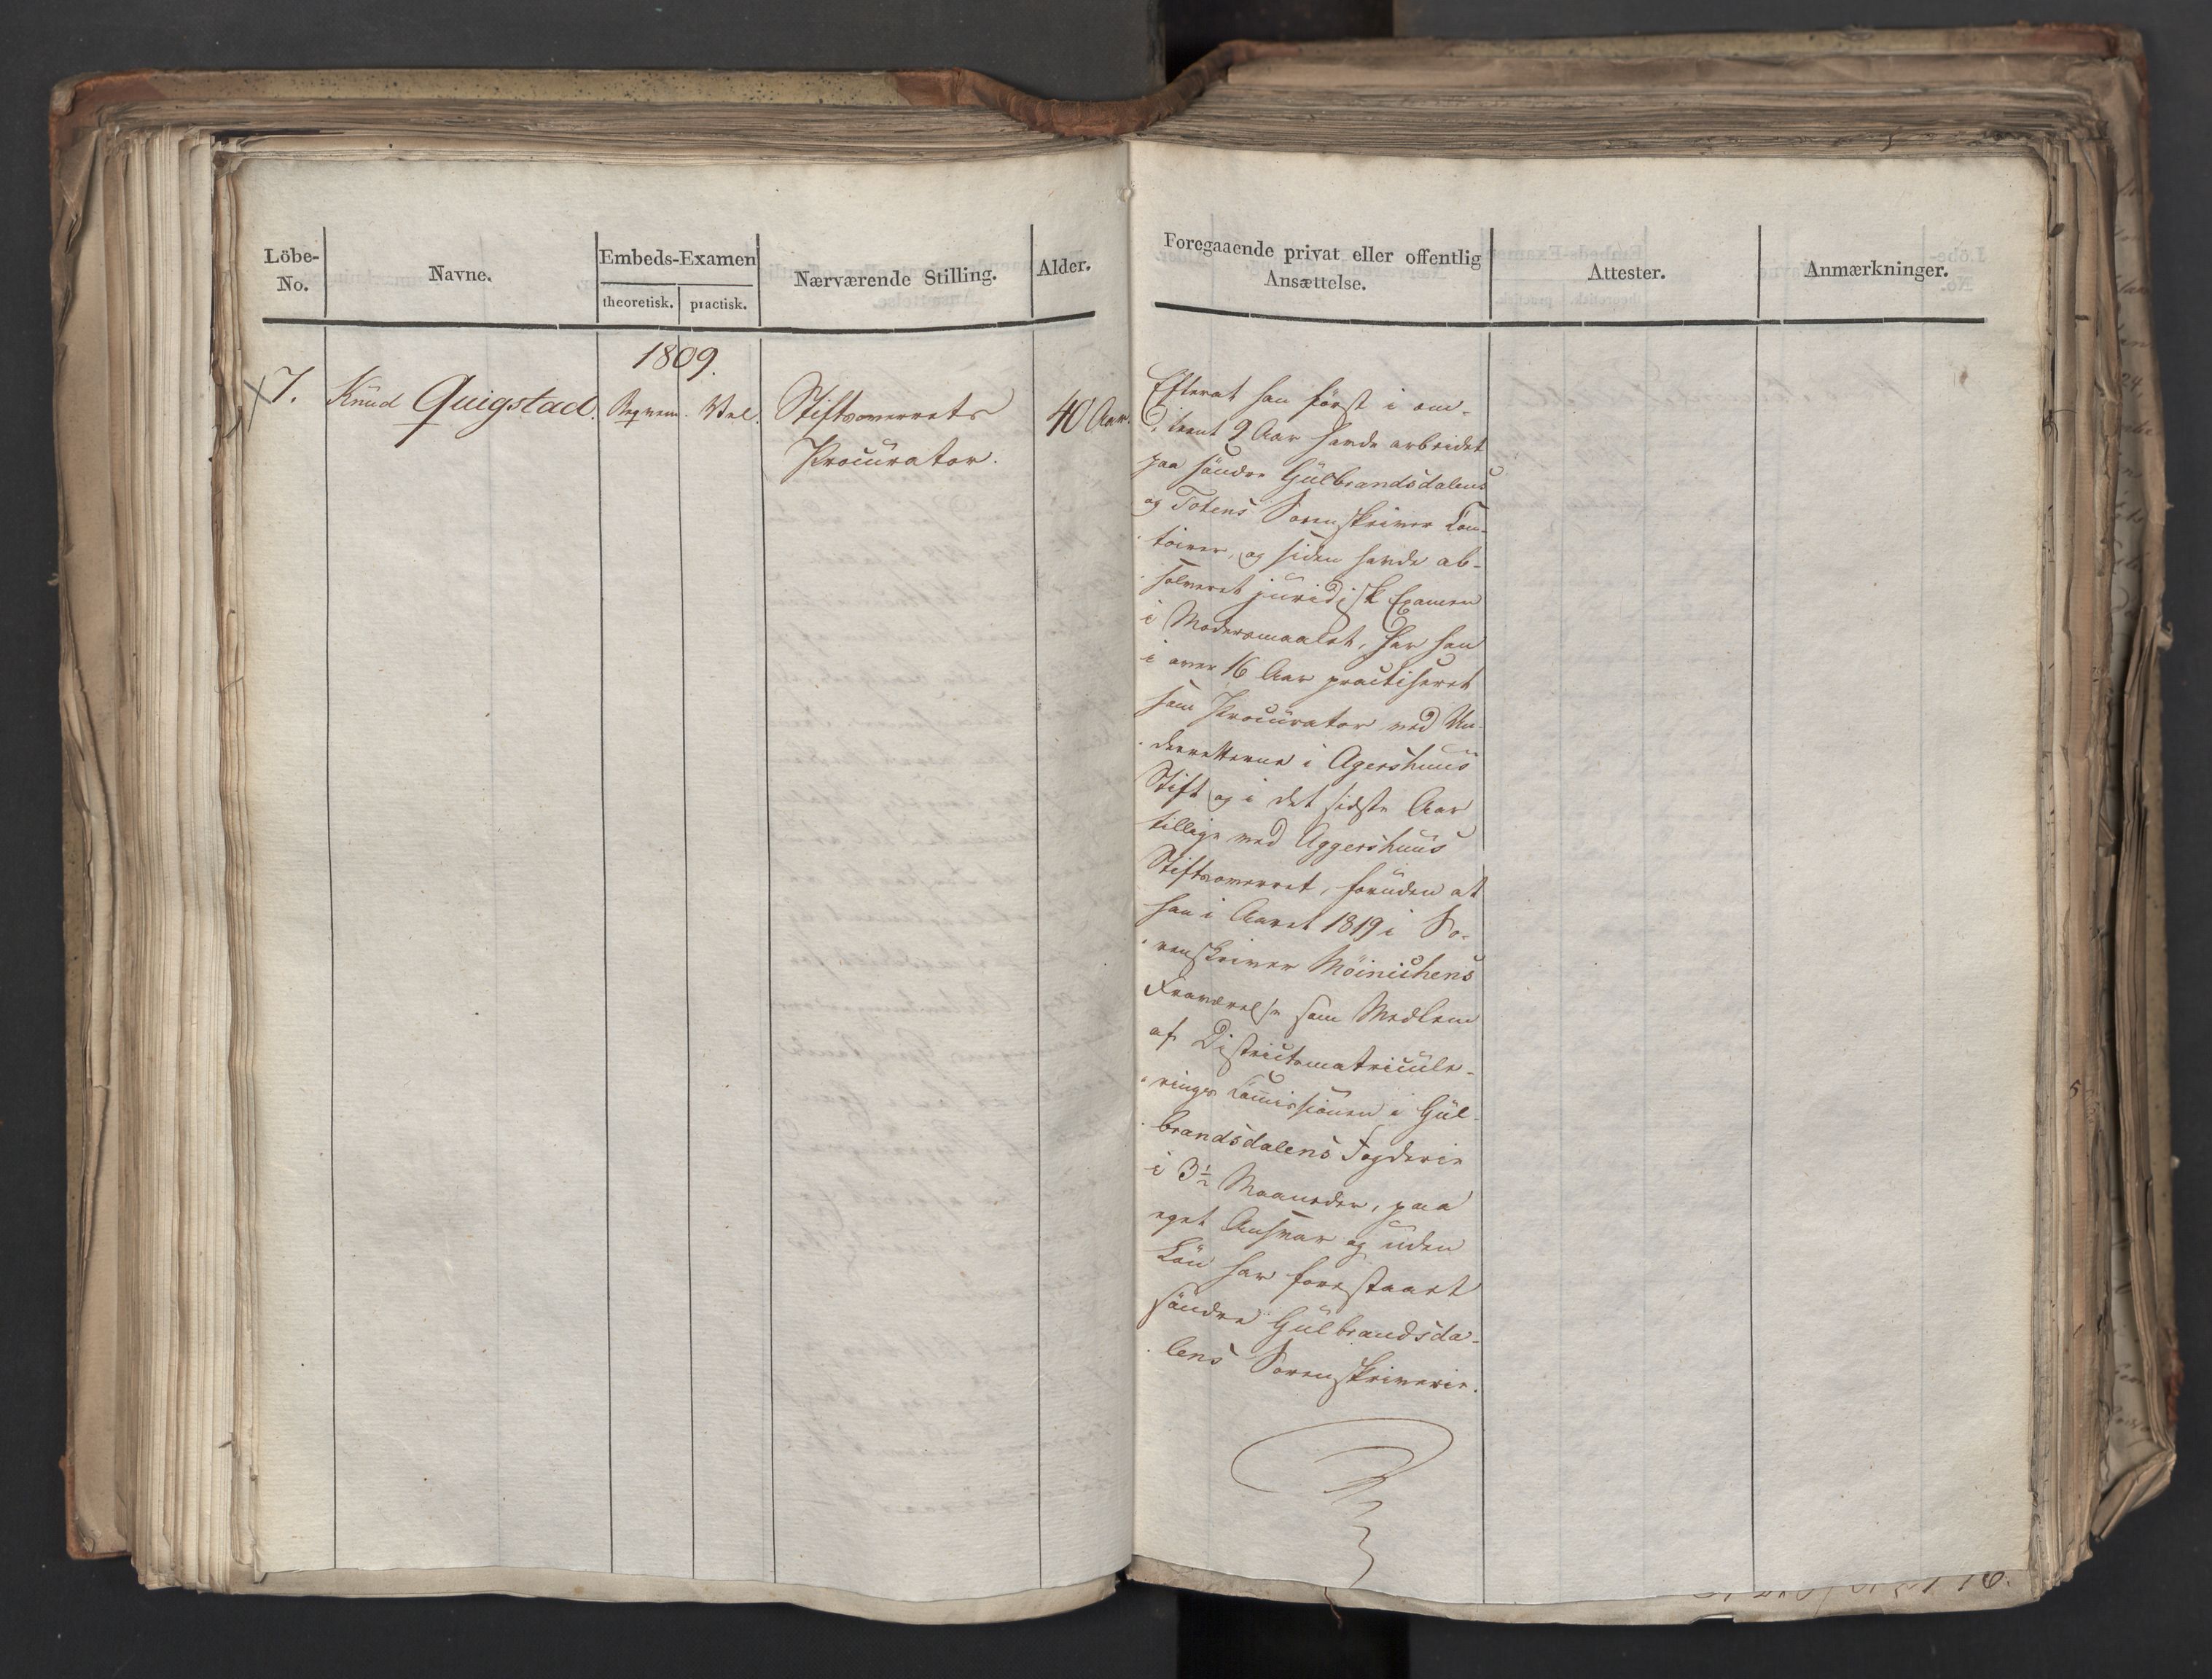 Löbe-
No.
Navne.
Embeds-Examen
theoretisk.
practisk.
Nærværende Stilling.
Alder.
1809.
7.
Knud Quigstad.
Beqvem.
Vel.
Stiftsoverrets
Procurator.
40 Aar.
Foregaaende privat eller offentlig
Ansættelse.
Attester.
Anmærkninger.
Efterat han först i om-
trent 9 Aar havde arbeidet
paa söndre Gulbrandsdalens
og Totens Sorenskriver Con-
toirer, og siden havde ab-
solveret juridisk Examen
i Modersmaalet, har han
i over 16 Aar practiseret
som Procurator ved Un-
derretterne i Agershuus
Stift og i det sidste Aar
tillige ved Aggershuus
Stiftsoverret, foruden at
han i Aaret 1819 i So-
renskriver Möinichens
Fraværelse som Medlem
af Districtsmatricule-
rings Commissionen i Gul-
brandsdalens Fogderie
i 3½ Maaneder, paa
eget Ansvar og uden
Lön har forestaaet
söndre Gulbrandsda-
lens Sorenskriverie.